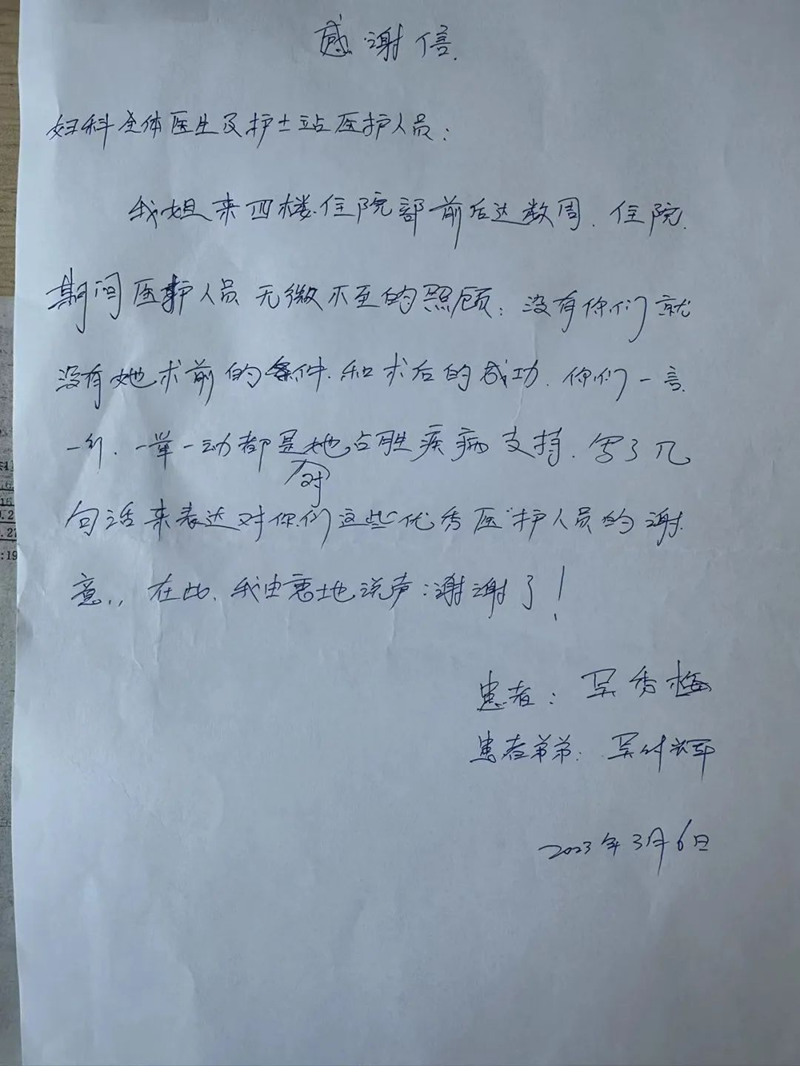 感谢信.
妇科全体医生及护士站医护人员:
我姐来四楼.住院部前后达数周.住院.
期间医护人员无微不至的照顾;没有你们就
没有她术前的条件.和术后的成功.你们一言
一行.一举一动都是她占胜疾病支持.写了几
对
句话来表达对你们这些优秀医护人员的谢
意,,在此.我由衷地说声:谢谢了!
患者:吴秀梅
患者弟弟:吴时辉
2023年3月6日